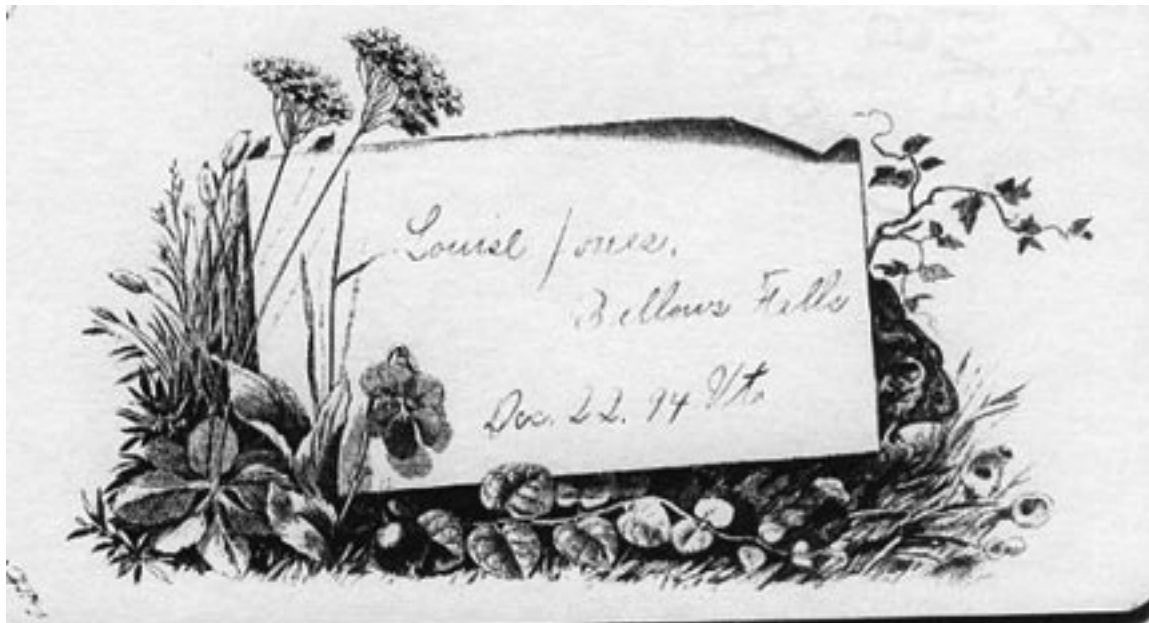 Louise Jones.
Bellows Falls
Dec. 22. 94 Vt.